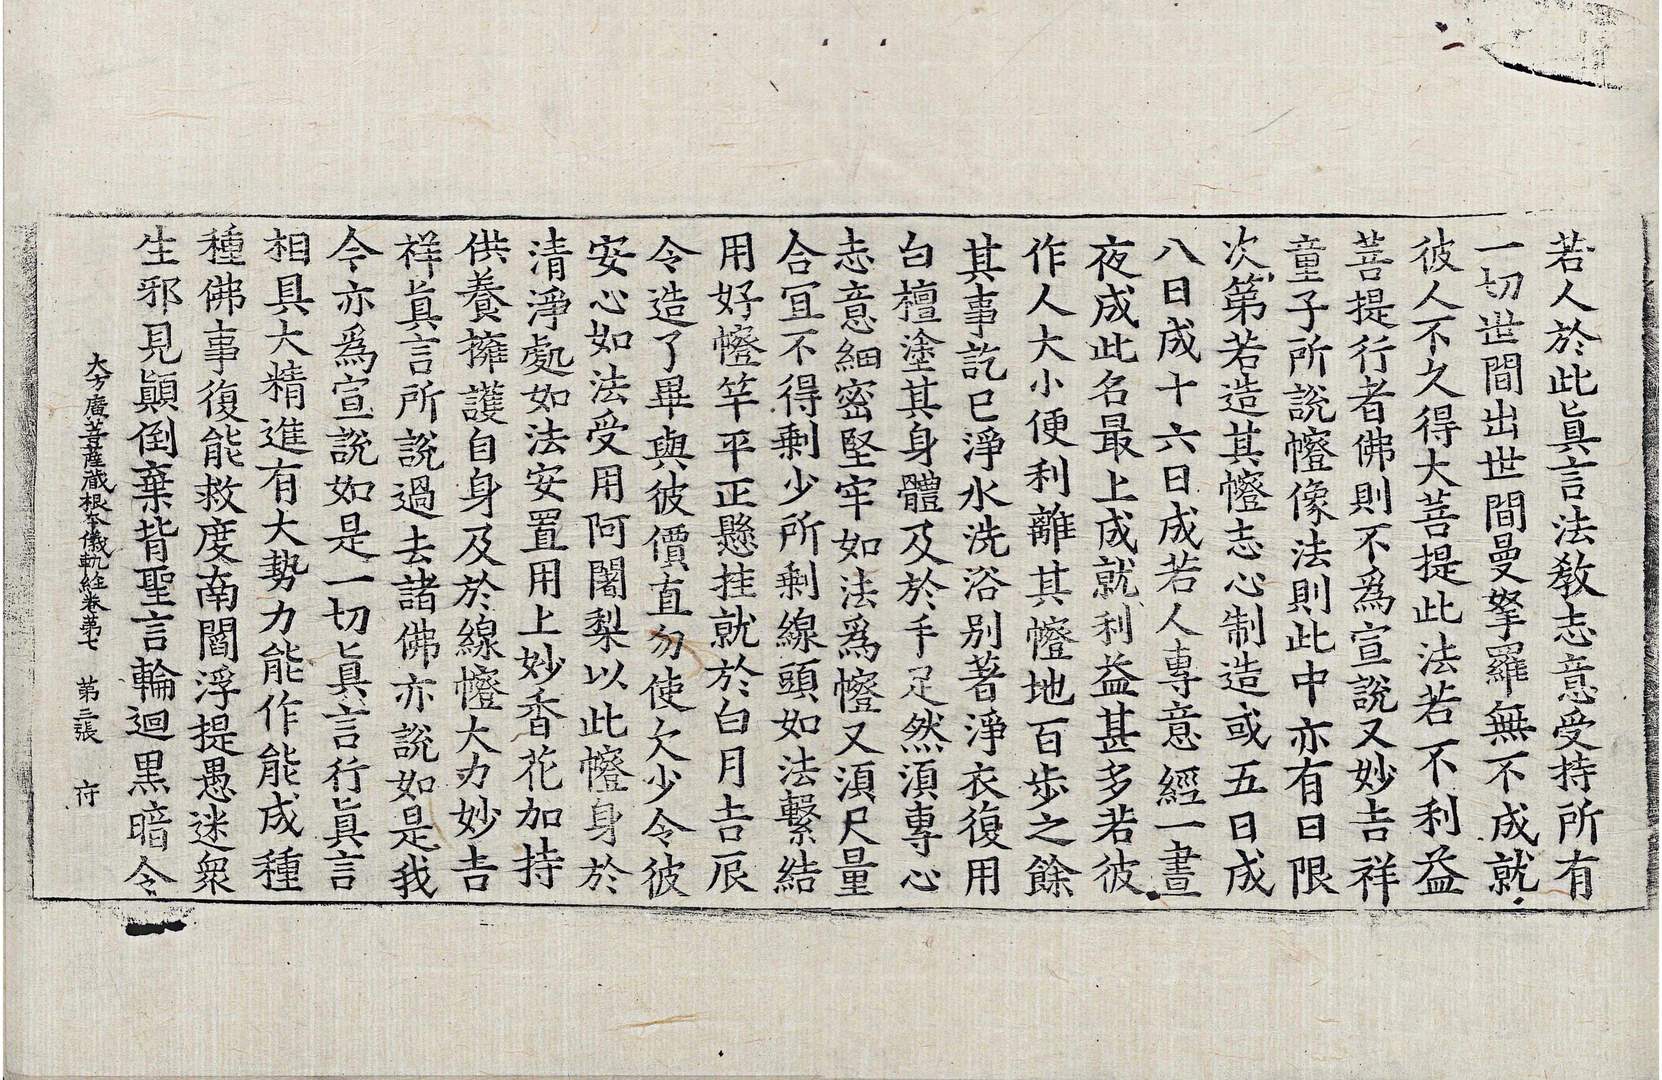 若人於此眞言法教志意受持所有
一切世間出世間曼拏羅無不成就
彼人不久得大菩提此法若不利益
菩提行者佛則不爲宣說又妙吉祥
童子所說㡧像法則此中亦有日限
次第若造其㡧志心制造或五日成
八日成十六日成若人專意經一晝
夜成此名最上成就利益甚多若彼
作人大小便利離其㡧地百步之餘
其事訖已淨水洗浴別著淨衣復用
白檀塗其身體及於手足然湏專心
志意細密堅牢如法爲㡧又湏尺量
合宜不得剩少所剩線頭如法繫結
用好㡧竿平正懸挂就於白月吉辰
令造了畢與彼價直勿使欠少令彼
安心如法受用阿闍梨以此㡧身於
清淨處如法安置用上妙香花加持
供養擁護自身及於線㡧大力妙吉
祥眞言所說過去諸佛亦說如是我
今亦爲宣說如是一切眞言行眞言
相具大精進有大勢力能作能成種
種佛事復能救度南閻浮提愚迷衆
生邪見顚倒棄背聖言輪迴黒暗令
大方廣菩薩藏根本儀軌經卷第七 第三張 府